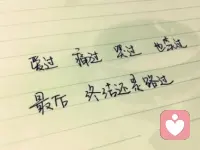 爱过 痛过 哭过 也笑过
最后 终结还是路过